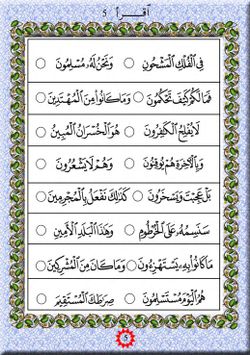 اقرأ ٥
فِي الْفُلْكِ الْمَشْحُونِ وَنَحْنُ لَهُ مُسْلِمُونَ
فَمَا لَكُمْ كَيْفَ تَحْكُمُونَ وَمَا كَانُوا مِنَ الْمُهْتَدِينَ
لَا يُفْلِحُ الْكَافِرُونَ هُوَ الْخُسْرَانُ الْمُبِينُ
وَبِالْآخِرَةِ هُمْ يُوقِنُونَ وَهُمْ لَا يَشْعُرُونَ
بَلْ عَجِبْتَ وَيَسْخَرُونَ كَذَٰلِكَ نَفْعَلُ بِالْمُجْرِمِينَ
سَنَسِمُهُ عَلَى الْخُرْطُومِ وَهَٰذَا الْبَلَدِ الْأَمِينِ
مَا كَانُوا بِهِ يَسْتَهْزِءُونَ وَمَا كَانَ مِنَ الْمُشْرِكِينَ
هُمُ الْيَوْمَ مُسْتَسْلِمُونَ صِرَاطَكَ الْمُسْتَقِيمَ
5